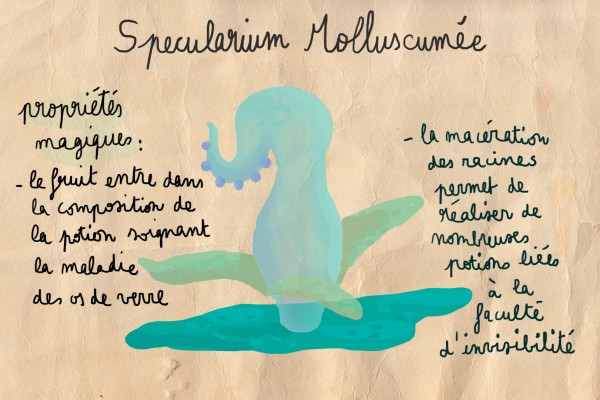 Specularium Molluscumée
propriétés
magiques :
- le fruit entre dans
la composition de
la potion soignant
la maladie
des os de verre
- la macération
des racines
permet de
réaliser de
nombreuses
potions liées
à la
faculté
d'invisibilité